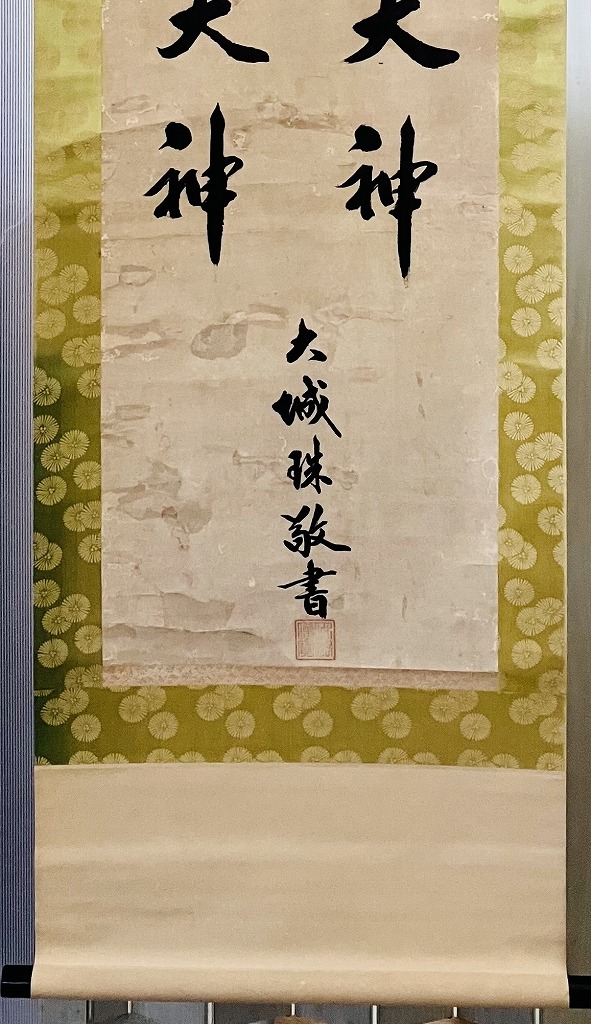 大神
大神
大城珠敬書